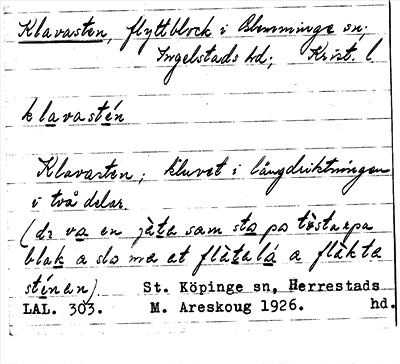 Klavasten, flyttblock i Blemminge sn;
Ingelstads hd; Krist. l
klavastén
Klavasten; kluvet i längdriktningen
i två delar.
(dɩ va en jäta sam sta pɔ tɔstarpa
blak a slɔ mæ et flätalá a fläkta
sténan).
St. Köpinge sn, Herrestads hd.
LAL. 303. M. Areskoug 1926.